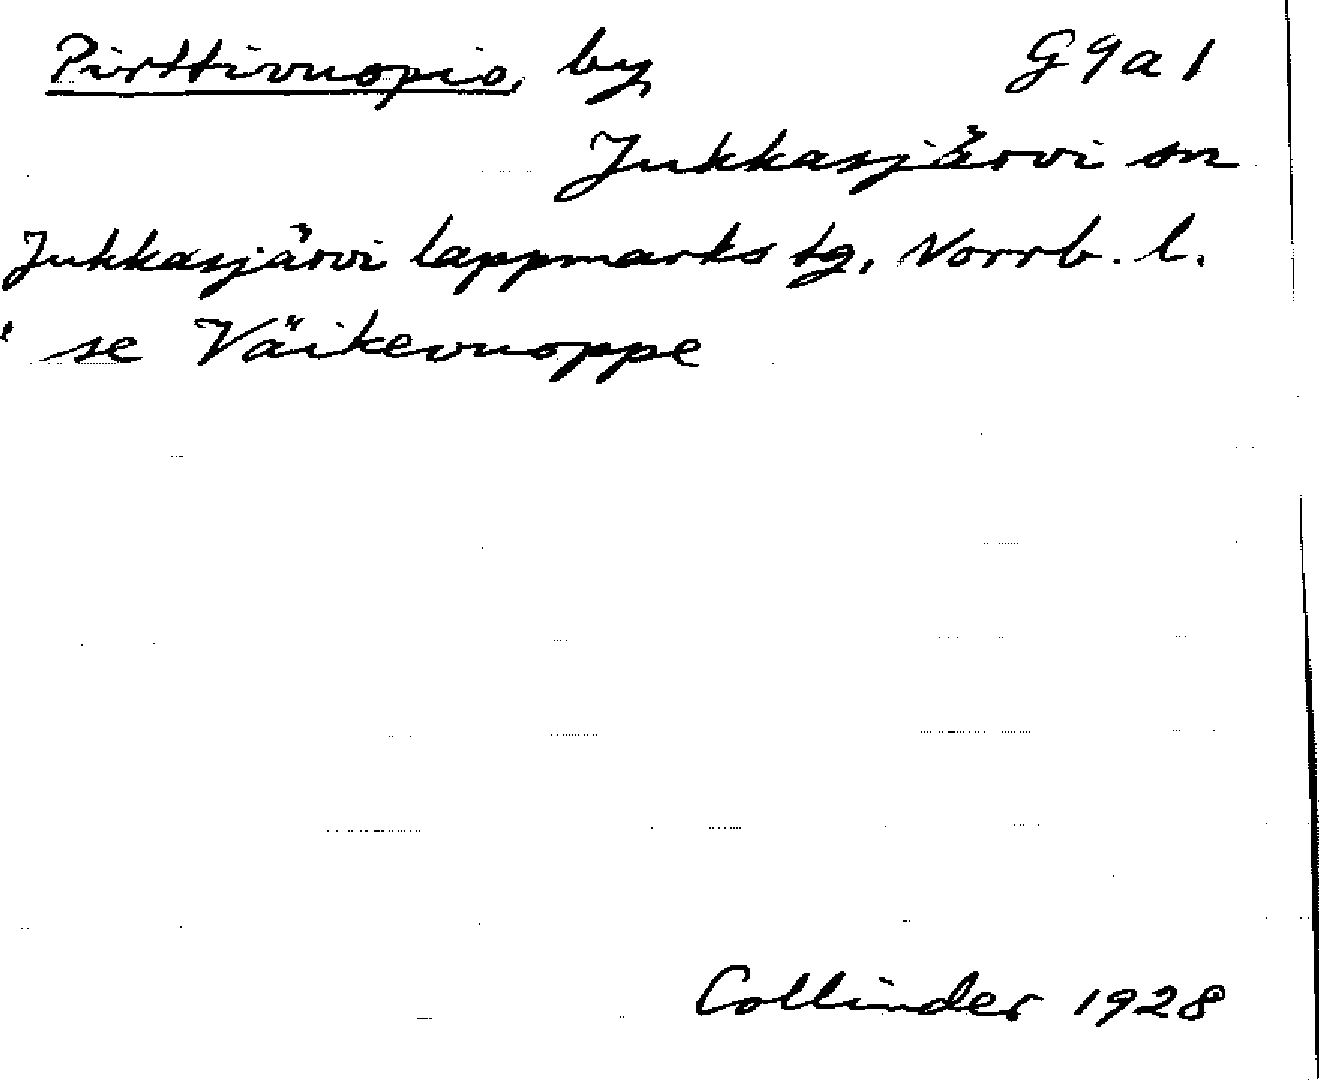 Pirttivuopio, by G9a1
Jukkasjärvi sn
Jukkasjärvi lappmarks tg, Norrb. l.
se Väikevuoppe
Collinder 1928